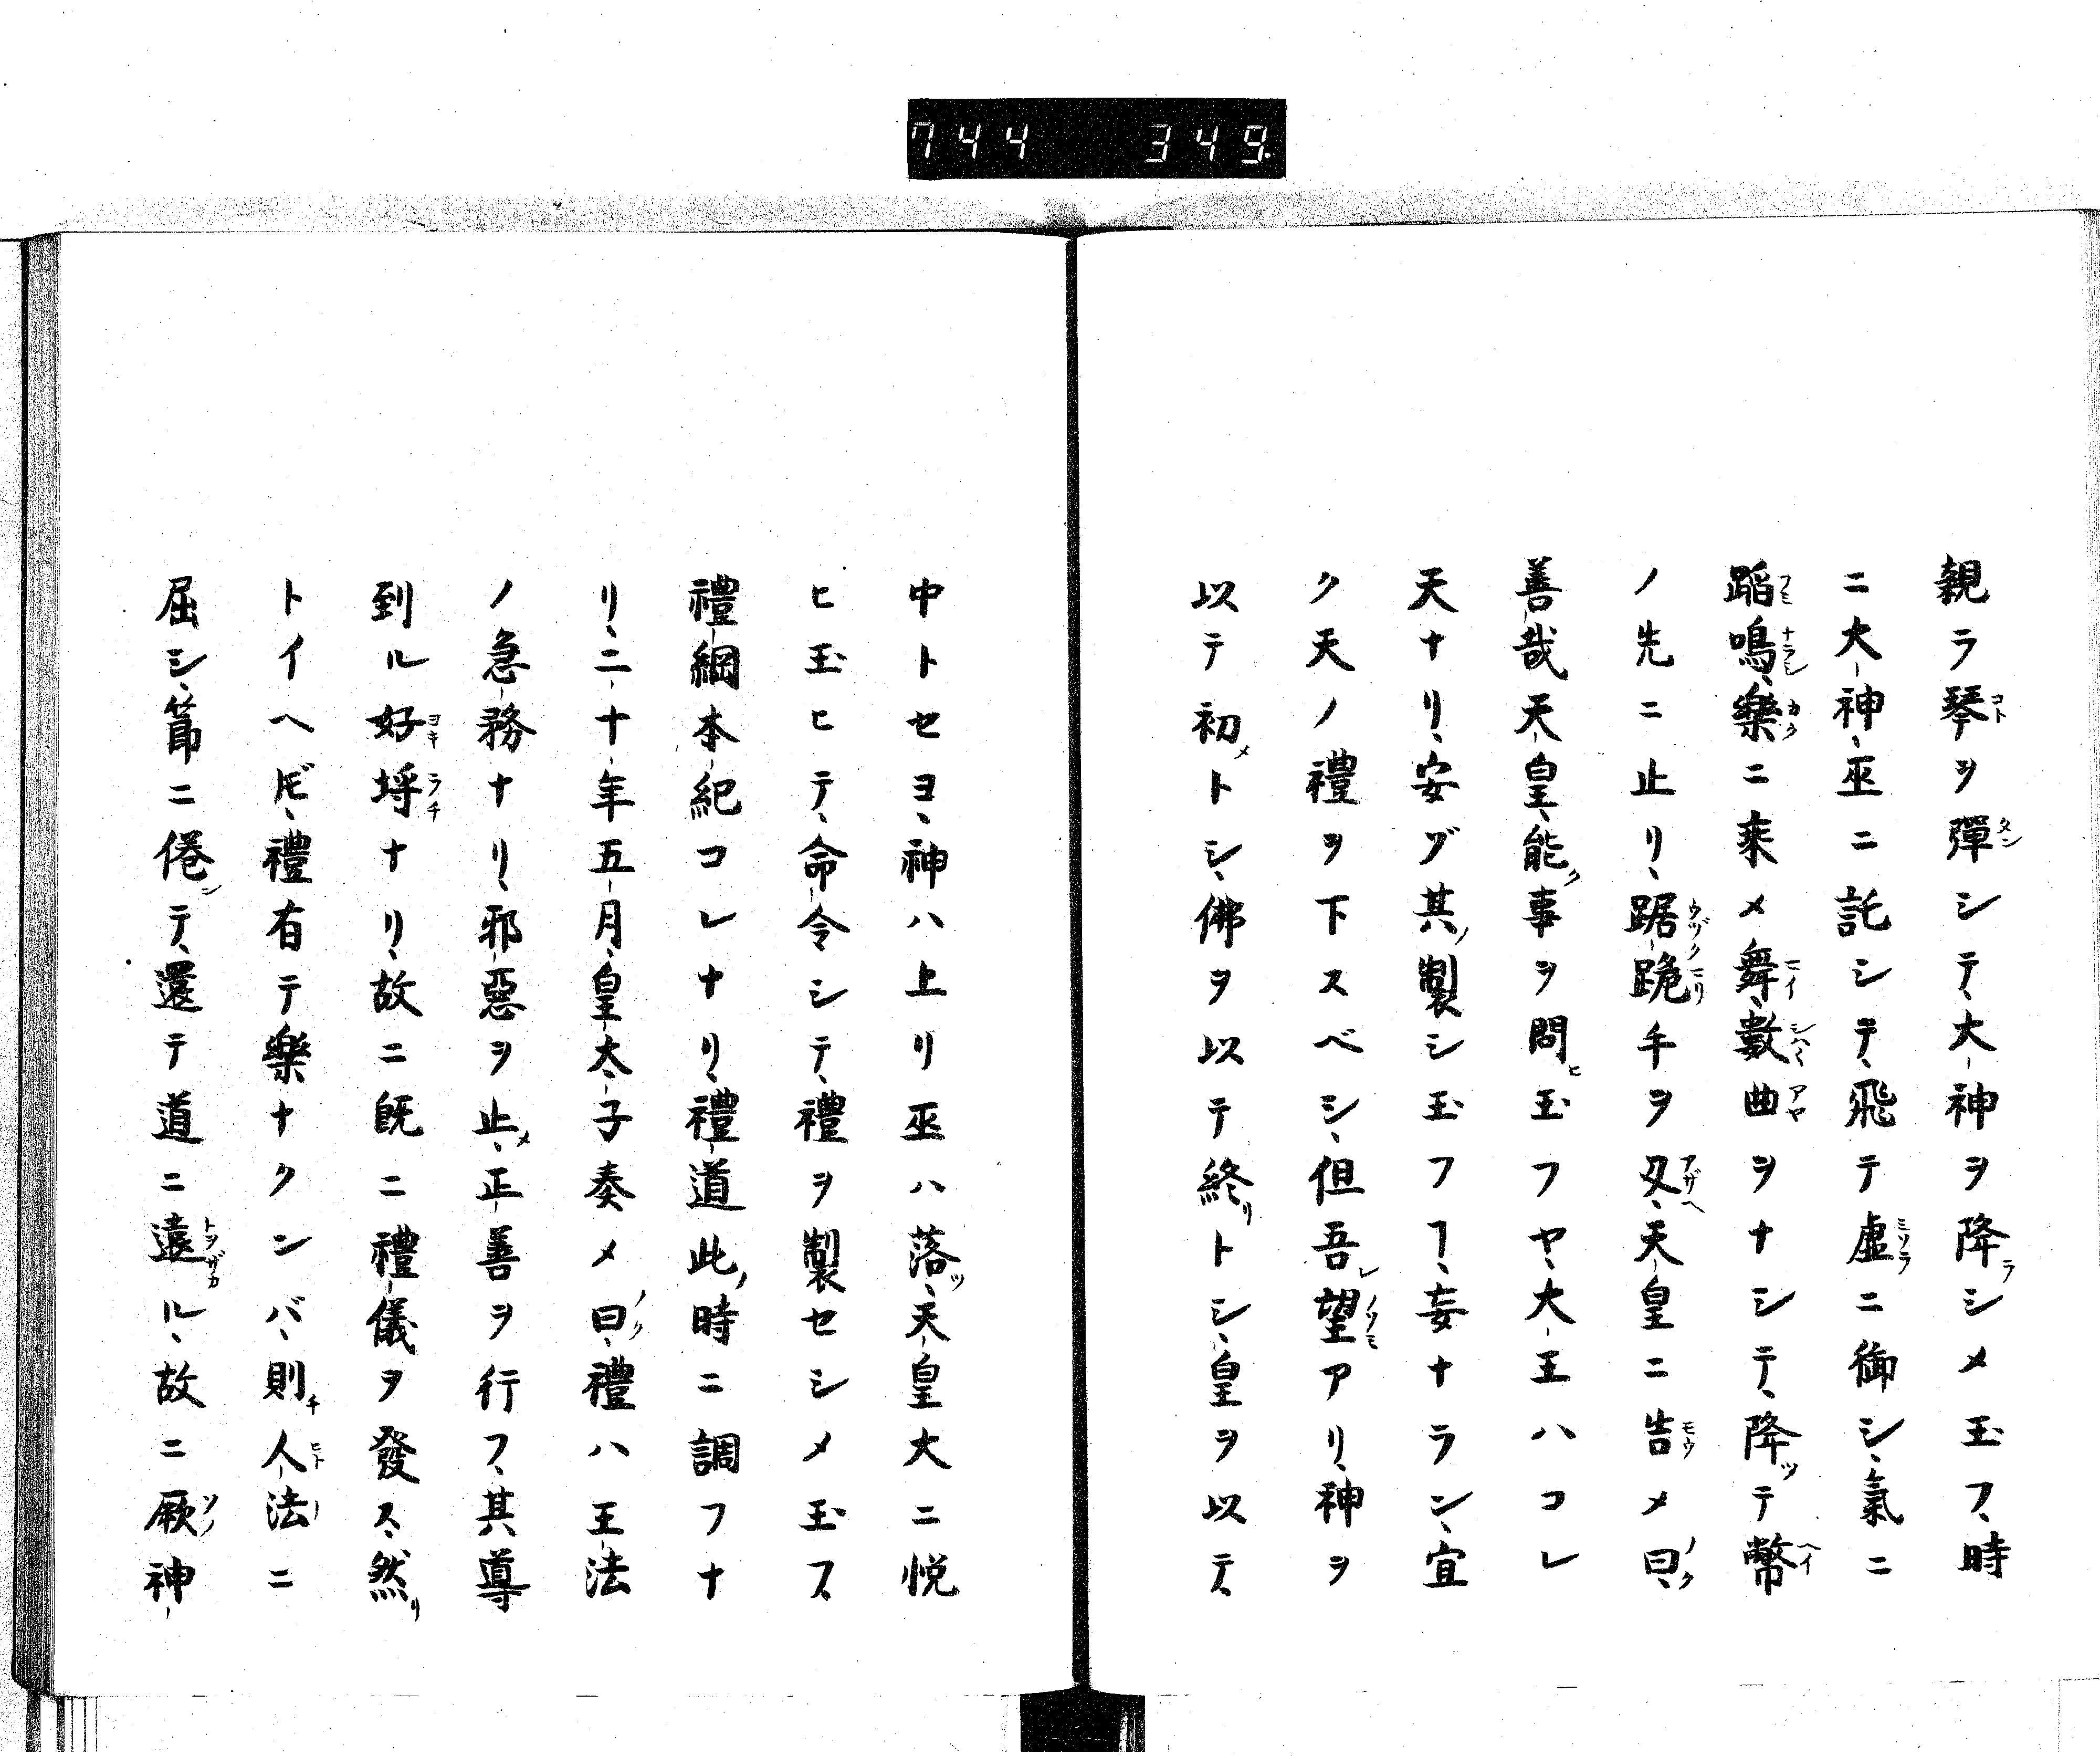 744 349
親ラ琴ヲ彈シテ、大神ヲ降シメ玉フ、時
ニ大神、巫ニ託シテ、飛テ虚ニ御シ、氣ニ
蹈鳴、樂ニ来メ舞、數曲ヲナシテ、降テ幣
ノ先ニ止リ、踞跪手ヲ叉、天皇ニ告メ曰、
善哉天皇、能事ヲ問玉フヤ、大王ハコレ
天ナリ、安ヅ其製シ玉フヿ、妄ナラン、宜
ク天ノ禮ヲ下スベシ、但吾望アリ、神ヲ
以テ初トシ、佛ヲ以テ終トシ、皇ヲ以テ、
中トセヨ、神ハ上リ巫ハ落、天皇大ニ悦
ヒ玉ヒテ、命令シテ、禮ヲ製セシメ玉フ、
禮綱本紀コレナリ、禮道此時ニ調フナ
リ、二十年五月、皇太子奏メ曰、禮ハ王法
ノ急務ナリ、邪惡ヲ止、正善ヲ行フ、其導
到ル好埒ナリ、故ニ既ニ禮儀ヲ發ス、然
トイヘ𪜈、禮有テ樂ナクンバ、則人法ニ
屈シ、節ニ倦テ、還テ道ニ遠ル、故ニ厥神